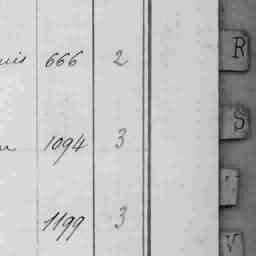 666 2
1094 3
1199 3
R
S
T
V